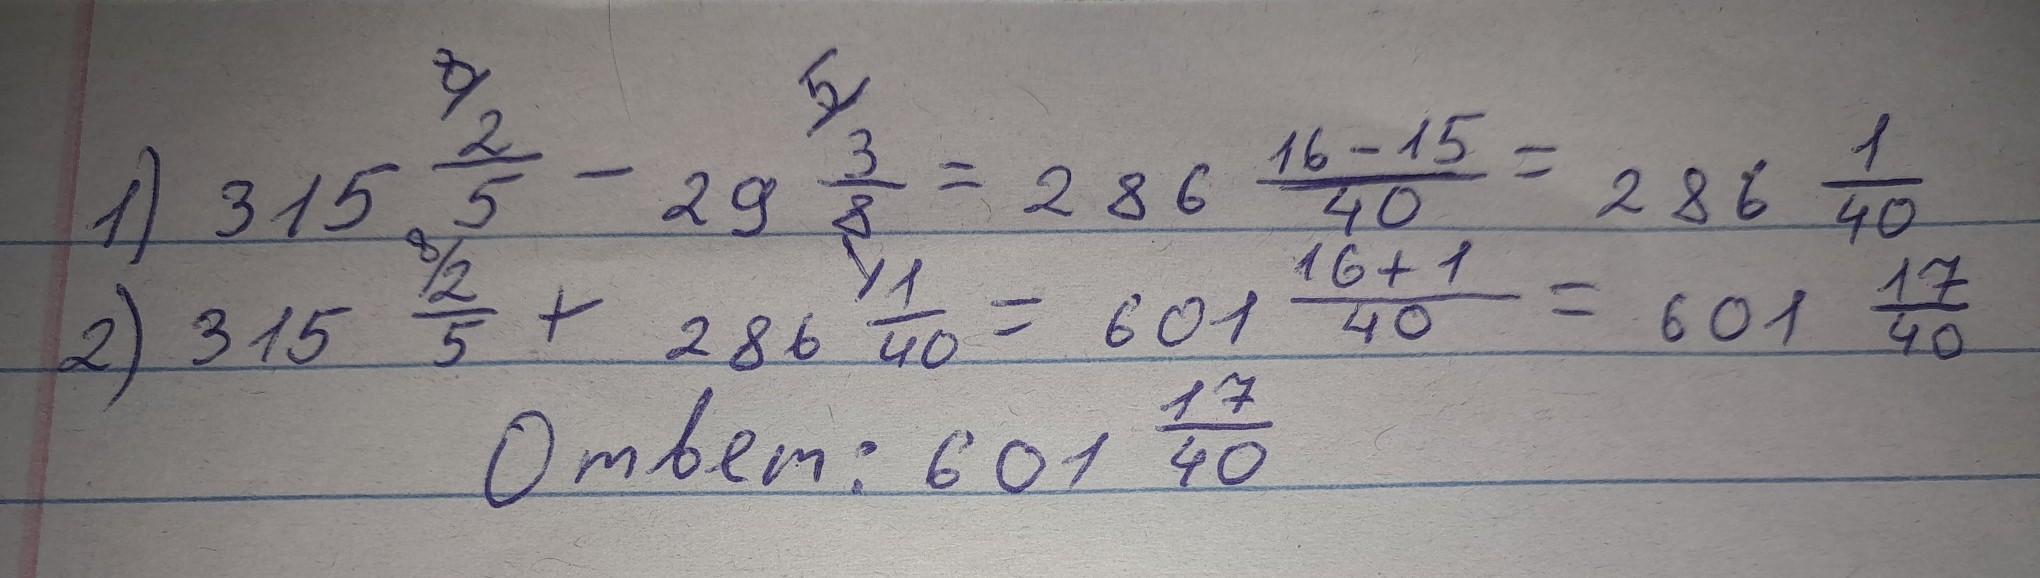 1) 315 8/ 2/5 - 29 5/ 3/8 = 286 16-15/40 = 286 1/40
2) 315 8/ 2/5 + 286 1/ 1/40 = 601 16+1/40 = 601 17/40
Ответ: 601 17/40